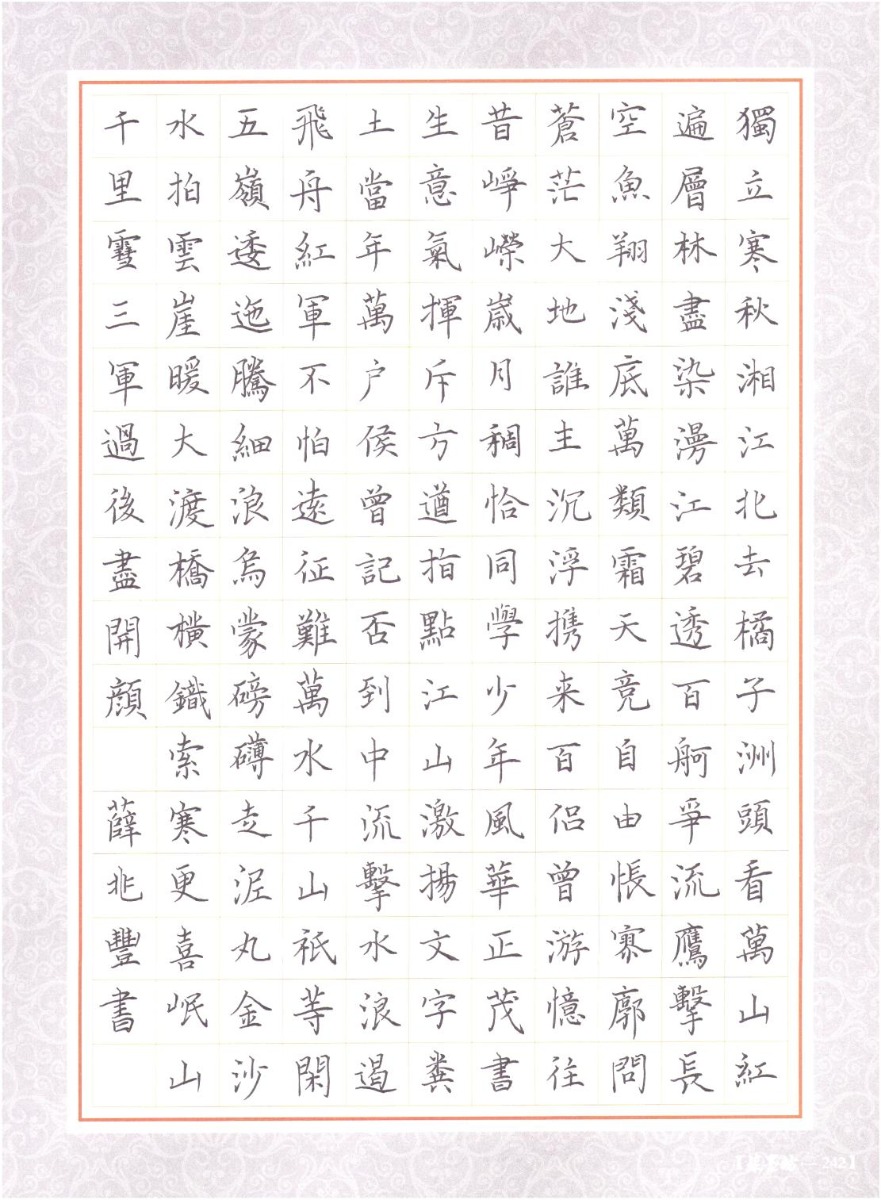 獨立寒秋湘江北去橘子洲頭看萬山紅
遍層林盡染漫江碧透百舸爭流鷹擊長
空魚翔淺底萬類霜天竞自由悵寥廓問
蒼茫大地誰主沉浮携来百侣曾游憶往
昔崢嶸歲月稠恰同學少年風華正茂書
生意氣揮斥方遒指點江山激揚文字糞
土當年萬户侯曾記否到中流擊水浪遏
飛舟紅軍不怕遠征難萬水千山衹等閑
五嶺逶迤騰細浪烏蒙磅礴走泥丸金沙
水拍雲崖暖大渡橋橫鐵索寒更喜岷山
千里雪三軍過後盡開顔 薛兆豐書
242